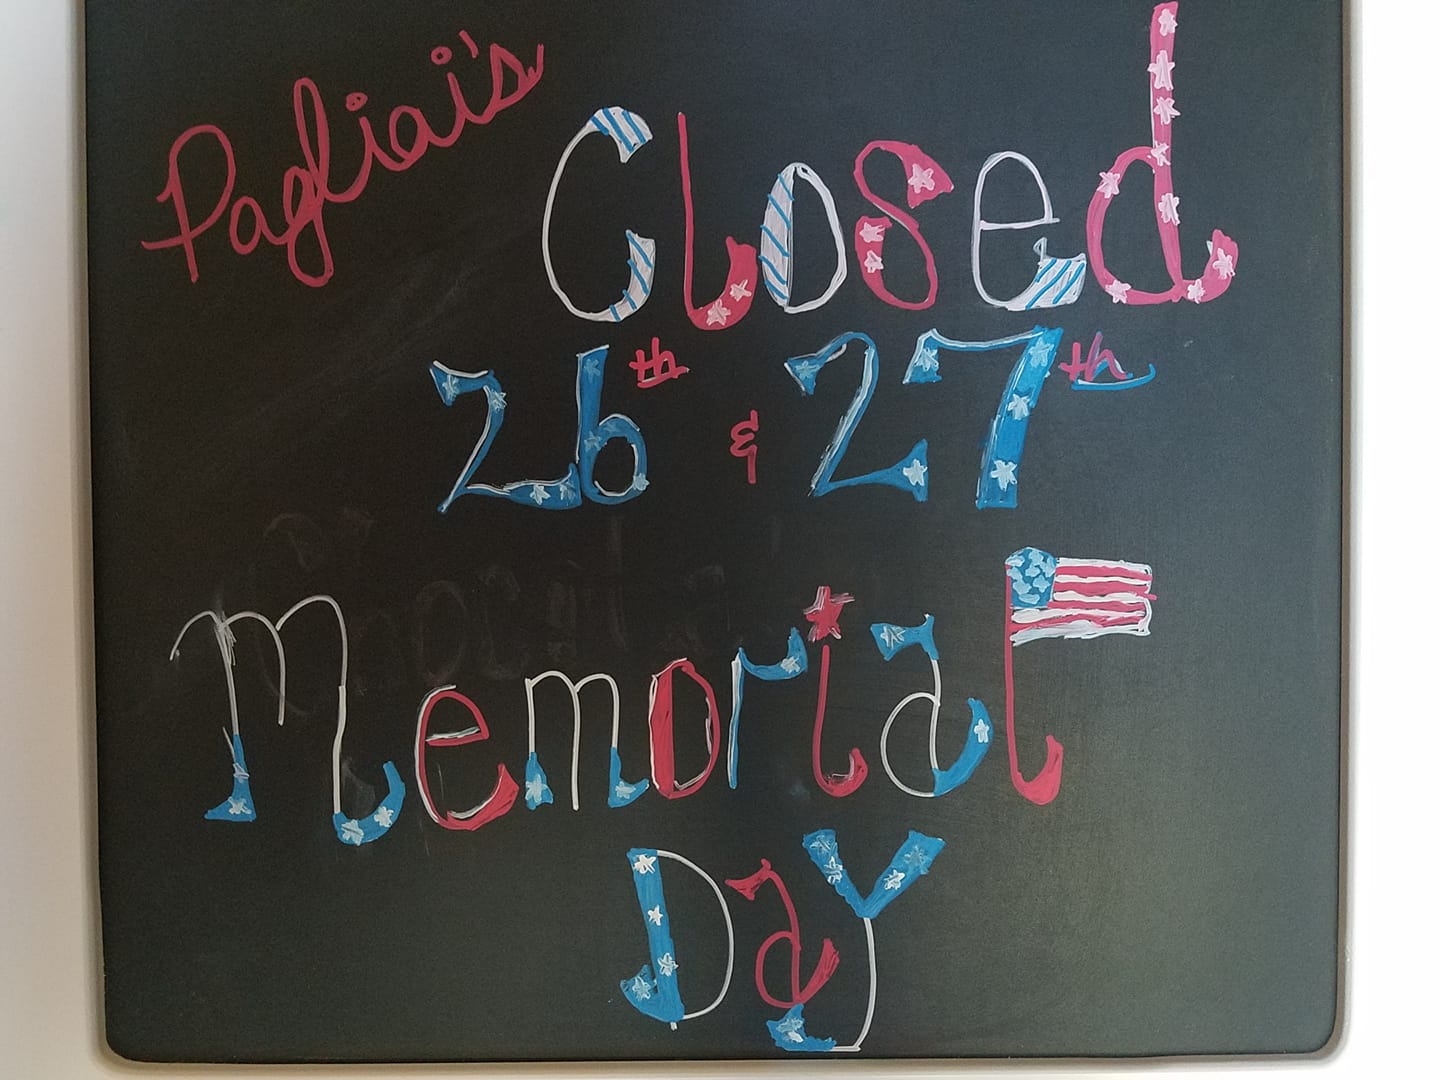 Pagliai's
Closed
26th & 27th
Memorial
Day